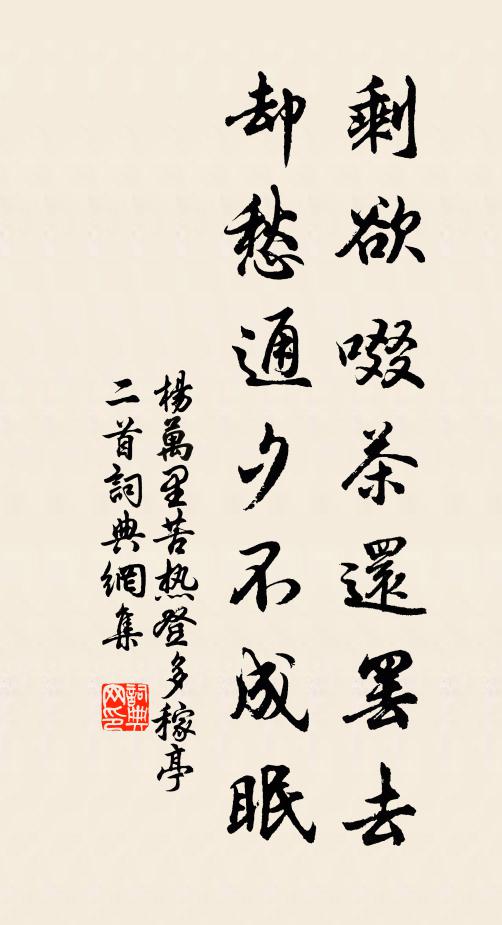 剩欲啜茶還罢去
却愁通夕不成眠
楊萬里苦热登多稼亭
二首詞典網集
詞典
网印